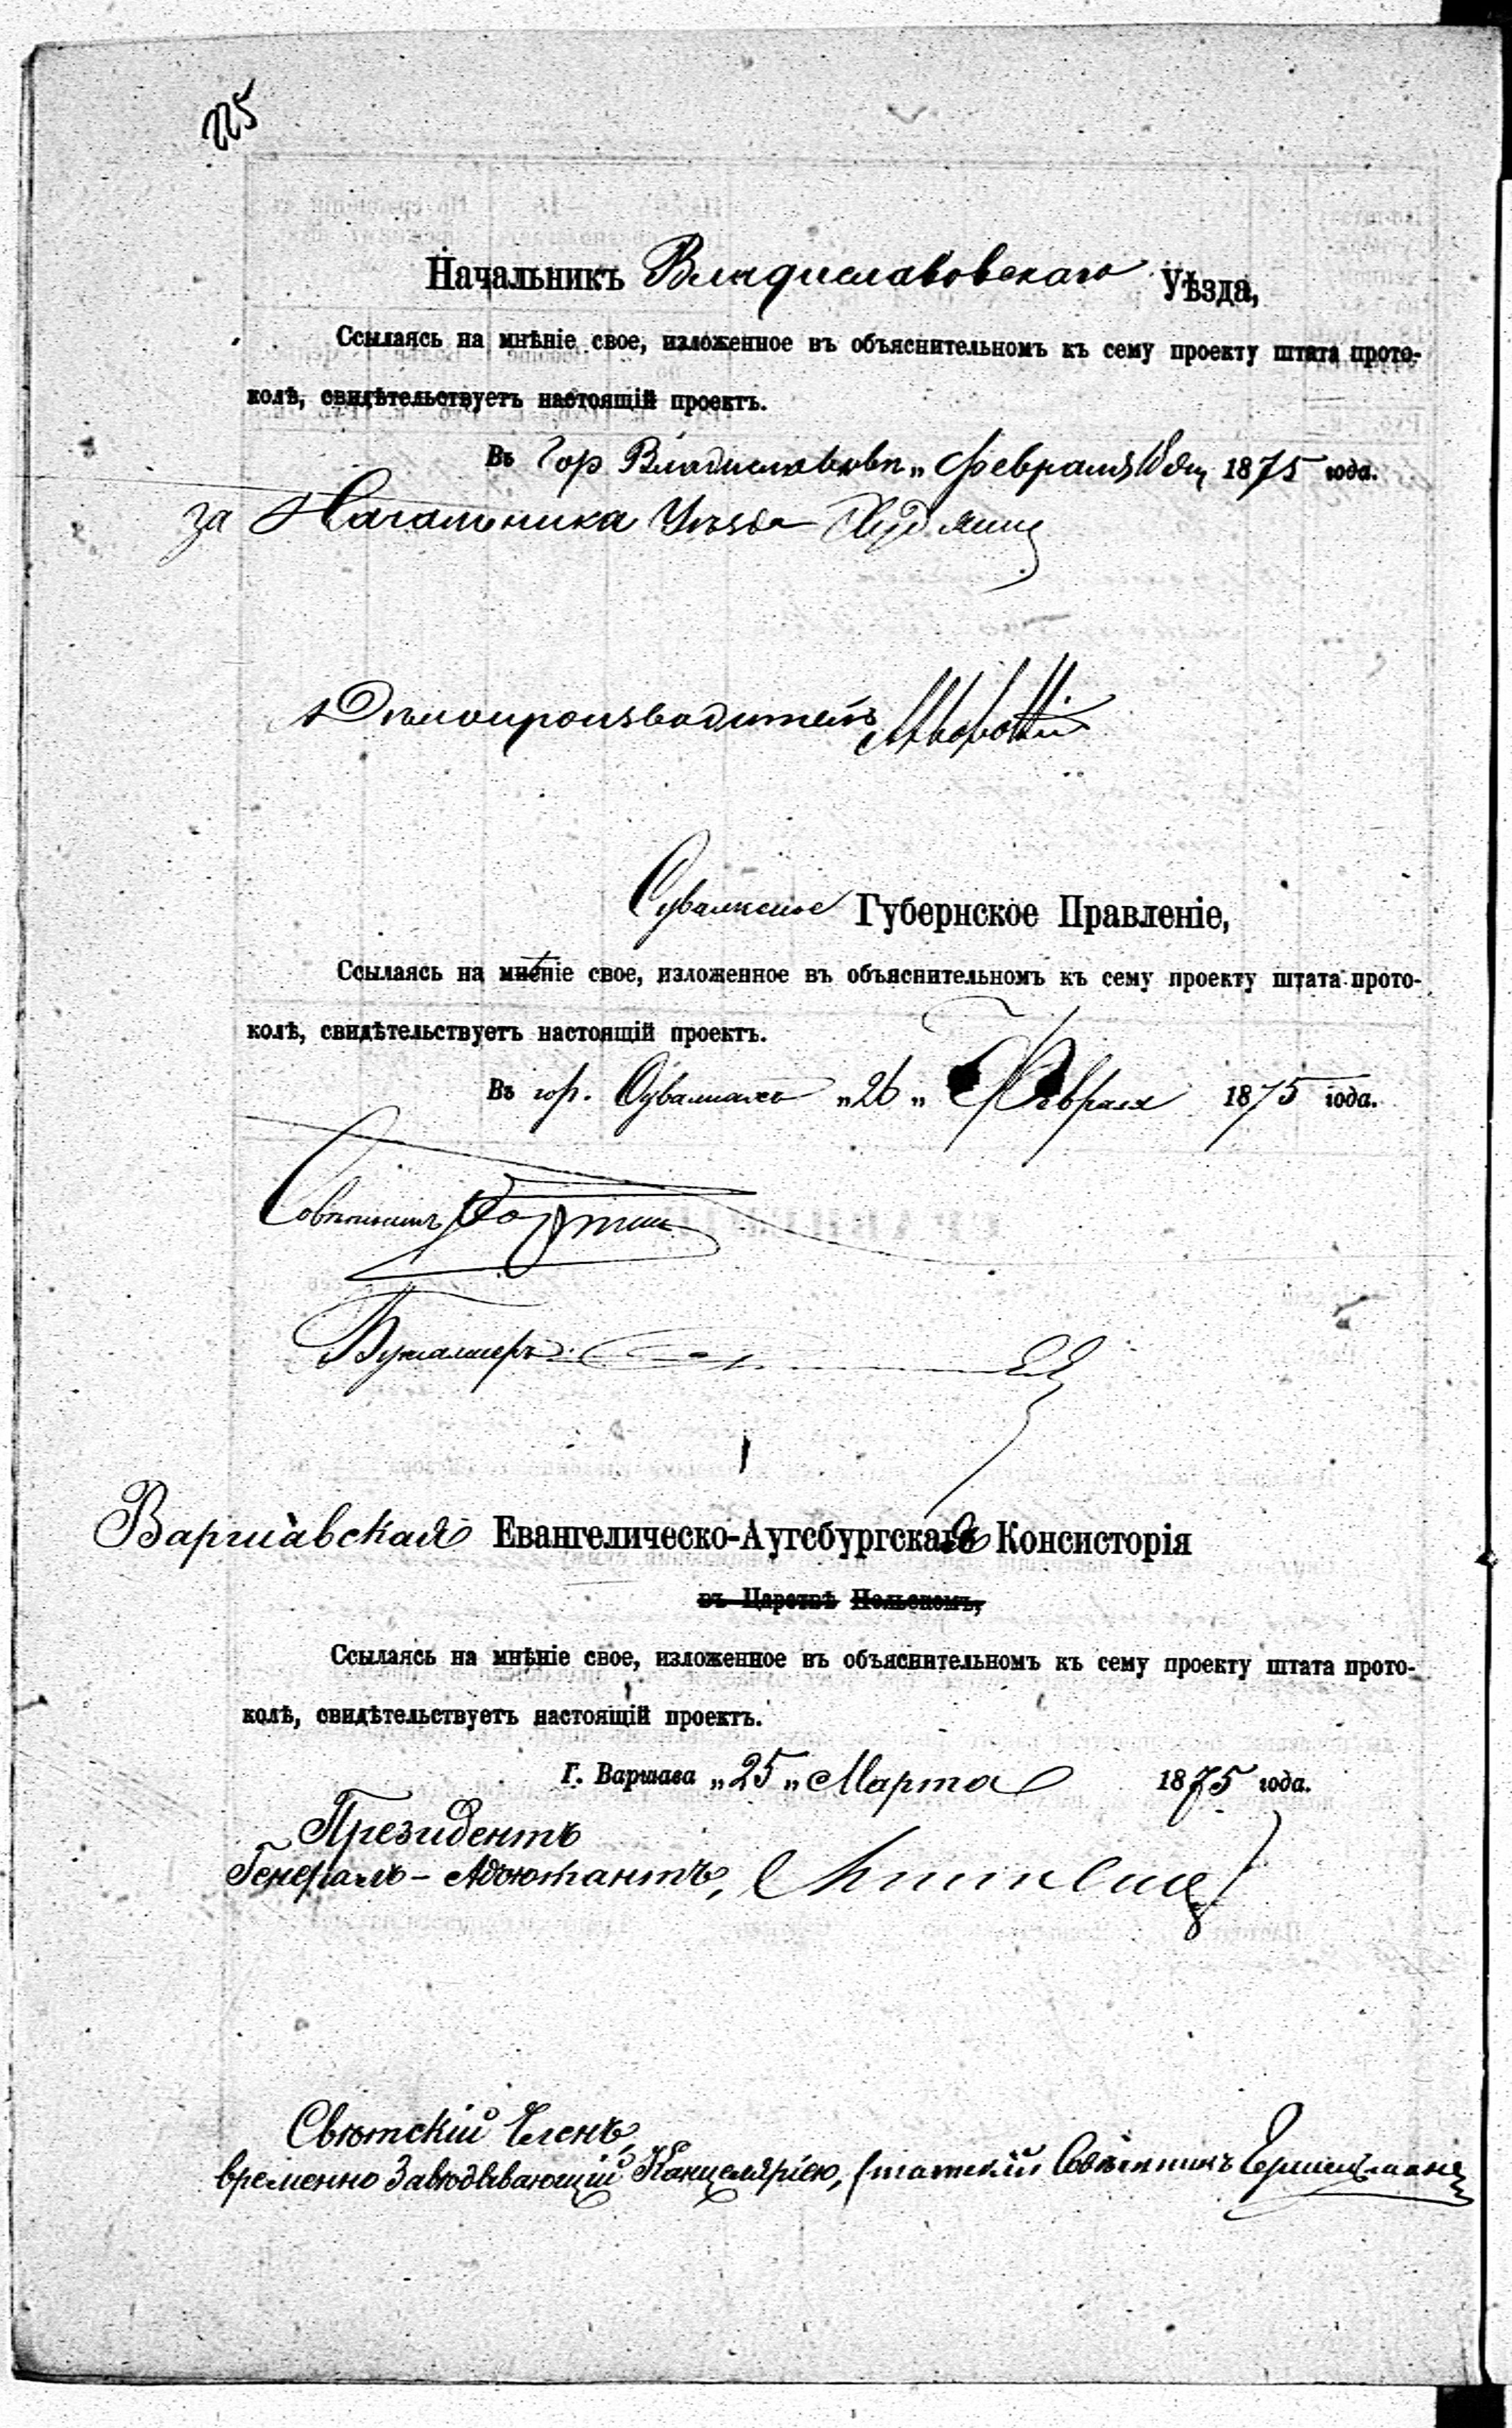 225
Начальникъ Владиславовскаго Уѣзда,
Ссылаясь на мнѣніе свое, изложенное въ объяснительномъ къ сему проекту штата прото-
колѣ, свидѣтельствуетъ настоящій проектъ.
Въ Гор Владиславовѣ „ Февраля 1875 года.
за Начальника Уѣзда
Дѣлопроизводитель
Сувалкское Губернское Правленіе,
Ссылаясь на мнѣніе свое, изложенное въ объяснительномъ къ сему проекту штата прото-
колѣ, свидѣтельствуетъ настоящій проектъ.
Въ гор. Сувалкахъ „26„ Февраля 1875 года.
Совѣтникъ
Бухгалтеръ
Варшавская Евангелическо-Аугсбургская Консисторія
въ Царствѣ Польскомъ,
Ссылаясь на мнѣніе свое, изложенное въ объяснительномъ къ сему проекту штата прото-
колѣ, свидѣтельствуетъ настоящій проектъ.
Г. Варшава „25„ Марта 1875 года.
Президентъ
Генералъ-Адъютантъ,
Свѣтскій Членъ,
временно Завѣдывающій Канцеляріею, Статскій Совѣтникъ